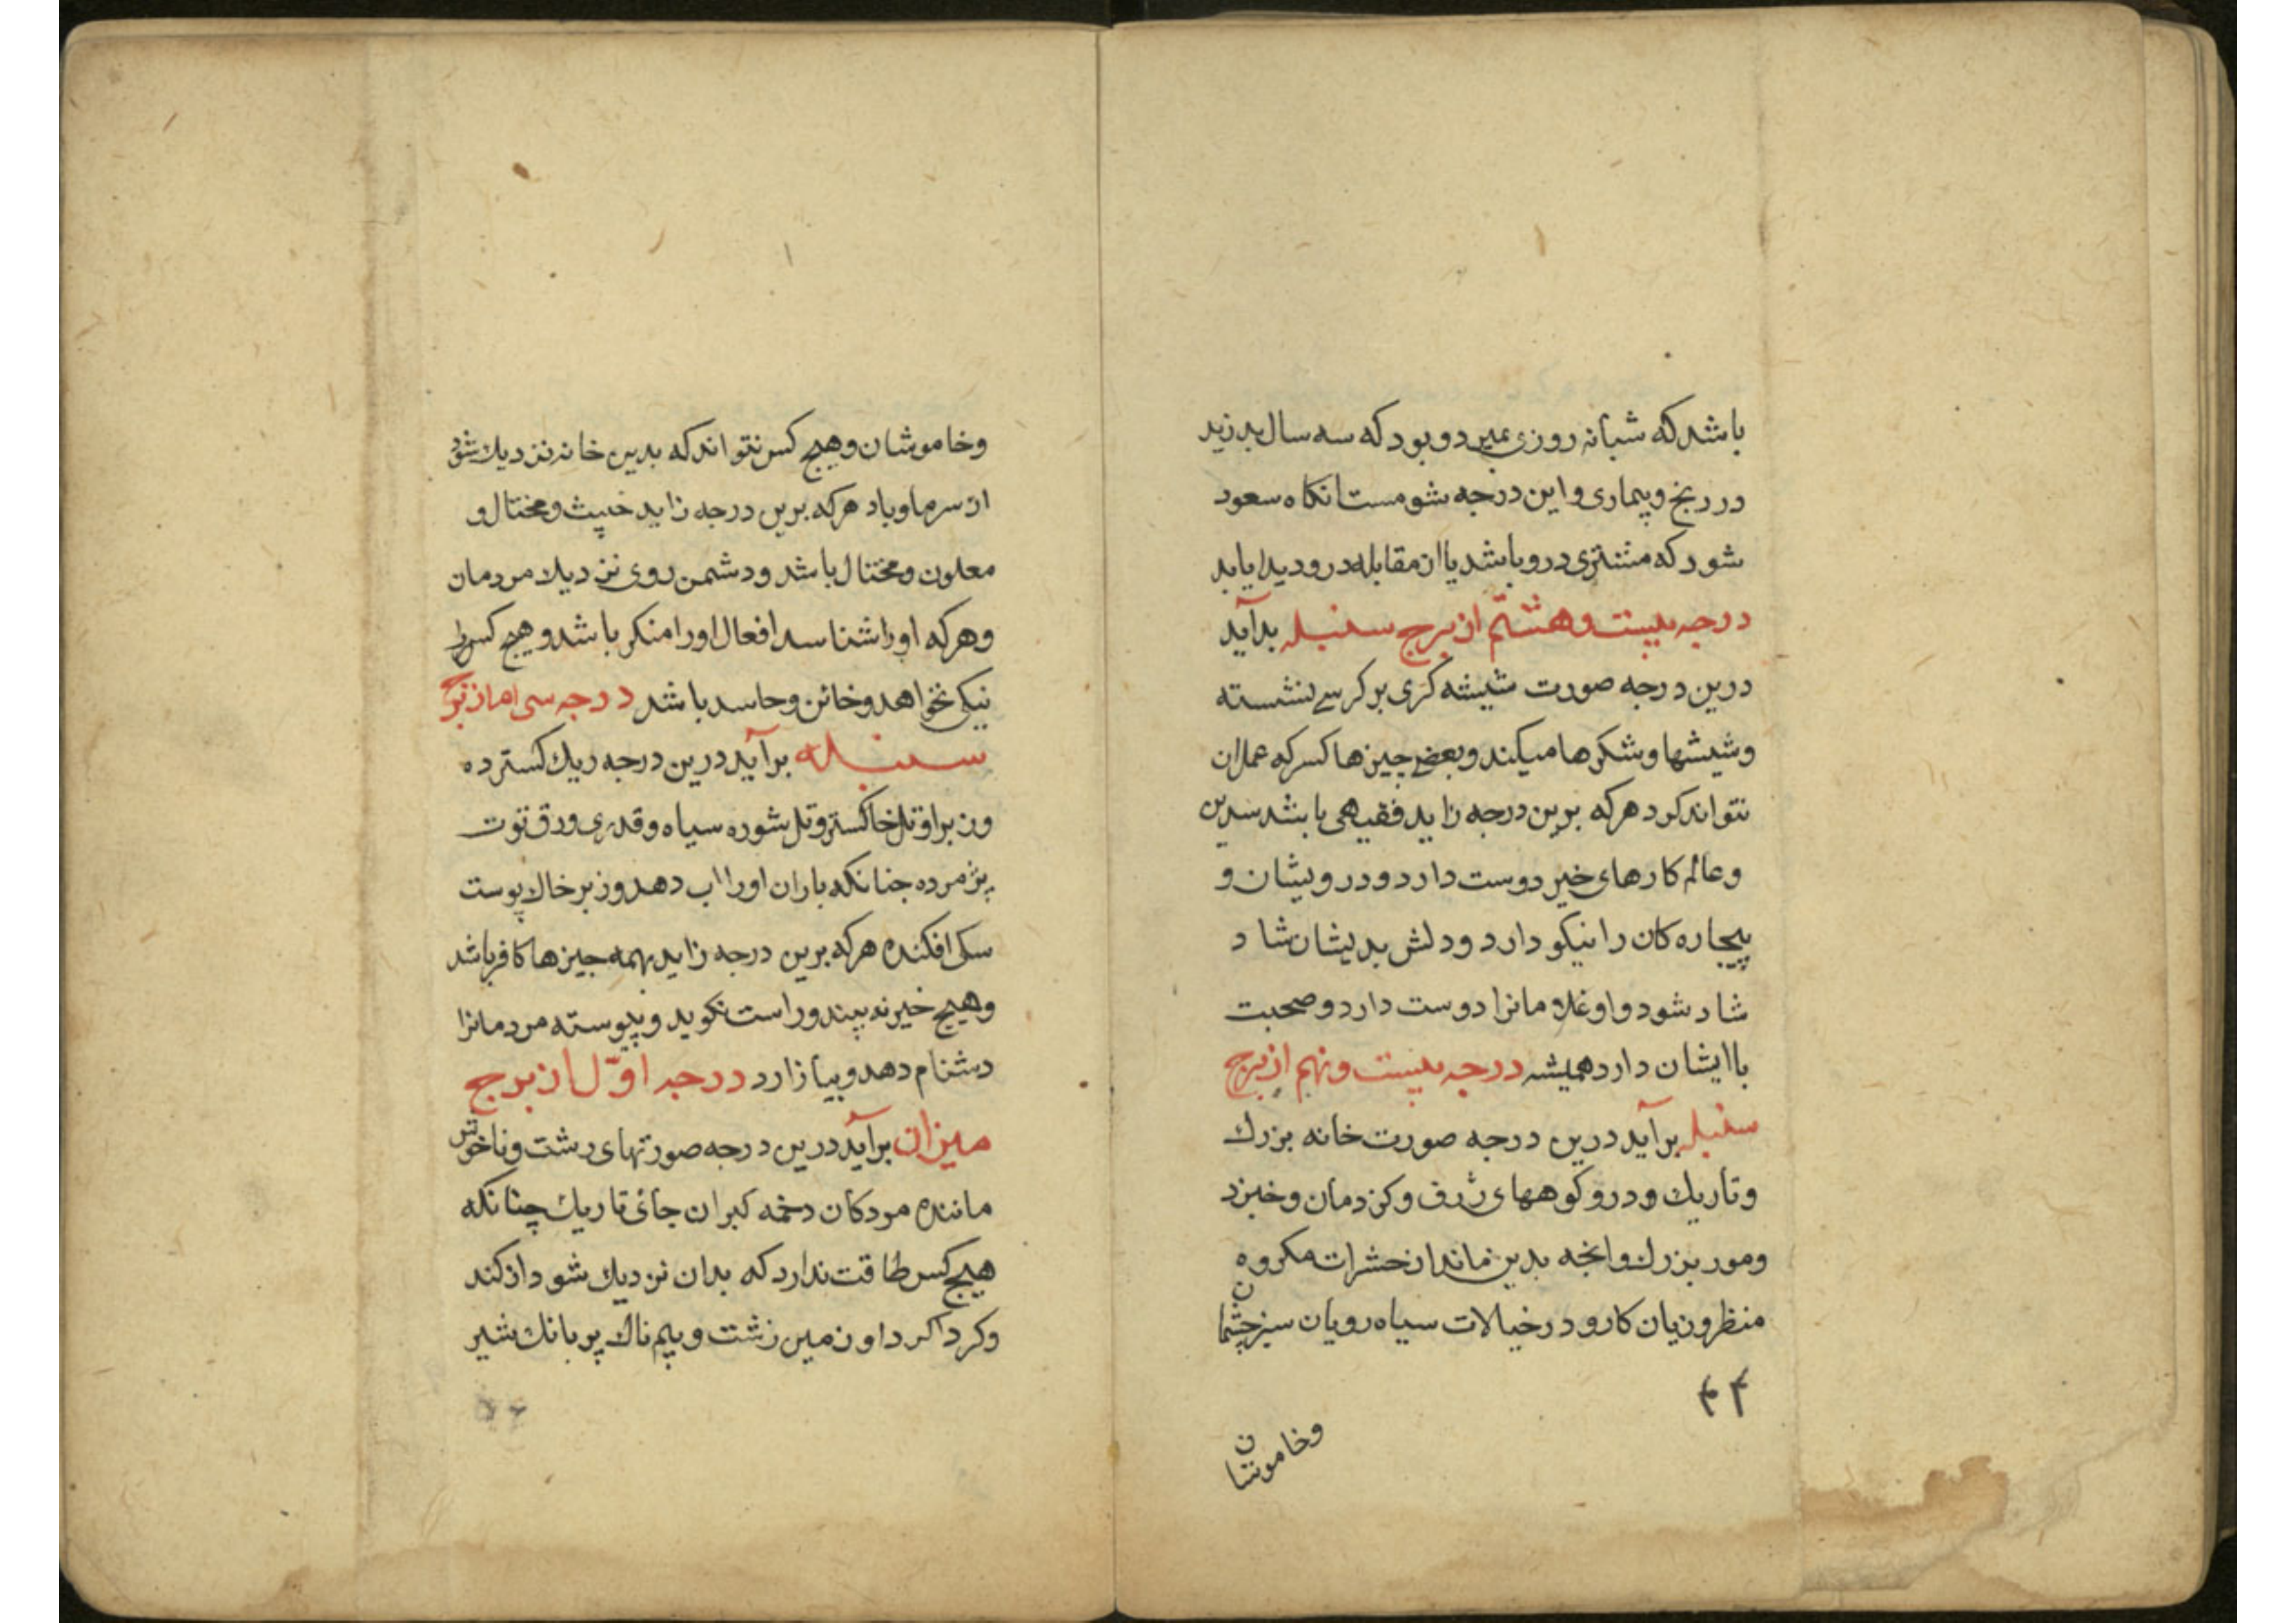 باشد که شبانه روزی بمیرد و بود که سه سال بزید
در رنج و بیماری و این درجه شومست انکاه سعود
شود که مشتری درو باشد یا از مقابله درو دیدار یابد
درجه بیست و هشتم از برج سنبله برآید
درین درجه صورت شیشه کری بر کرسی نشسته
وشیشها وشکرها میکند وبعضی چیزها کسر که عمل ان
نتواند کرد هرکه برین درجه زاید فقیهی باشد
وعالم کارهای خیر دوست دارد ودرویشان و
بیچاره کان را نیکو دارد ودلش بدیشان شاد
شاد شود واو غلامانرا دوست دارد وصحبت
با ایشان دارد همیشه درجه بیست ونهم از برج
سنبله برآید درین درجه صورت خانه بزرك
وتاریك ودرو کوههای ژرف وکزدمان وخبزد
ومور بزرك وانجه بدین ماند از حشرات مکروه
منظر وزیان کار ودر خیالات سیاه رویان سبز چشمان
۴۴
وخاموشان
وخاموشان وهیچ کس نتواند که بدین خانه نزدیك شود
از سرما وباد هرکه برین درجه زاید خبیث ومختال و
معلون ومختال باشد ودشمن روی نزدیك مردمان
وهرکه اورا شناسد افعال اورا منکر باشد وهیچ کس را
نیکی نخواهد وخائن وحاسد باشد درجه سی ام از برج
سنبله برآید درین درجه ریك کسترده
وزبر او تل خاکستر وتل شوره سیاه وقدری ورق توت
پژمرده جنانکه باران اورا اب دهد وزبر خاك پوست
سکی افکنده هرکه برین درجه زاید بهمه جیزها کافر باشد
وهیچ خیر نه بیند وراست نکوید وپیوسته مردمانرا
دشنام دهد وبیازارد درجه اوّل از برج
میزان برآید درین درجه صورتهای رشت وناخوش
ماننده مردکان دخمه کبران جائی تاریك چنانکه
هیچ کس طاقت ندارد که بدان نزدیك شود از کند
وکرداکرد او زمین زشت وبیم ناك پر بانك شیر